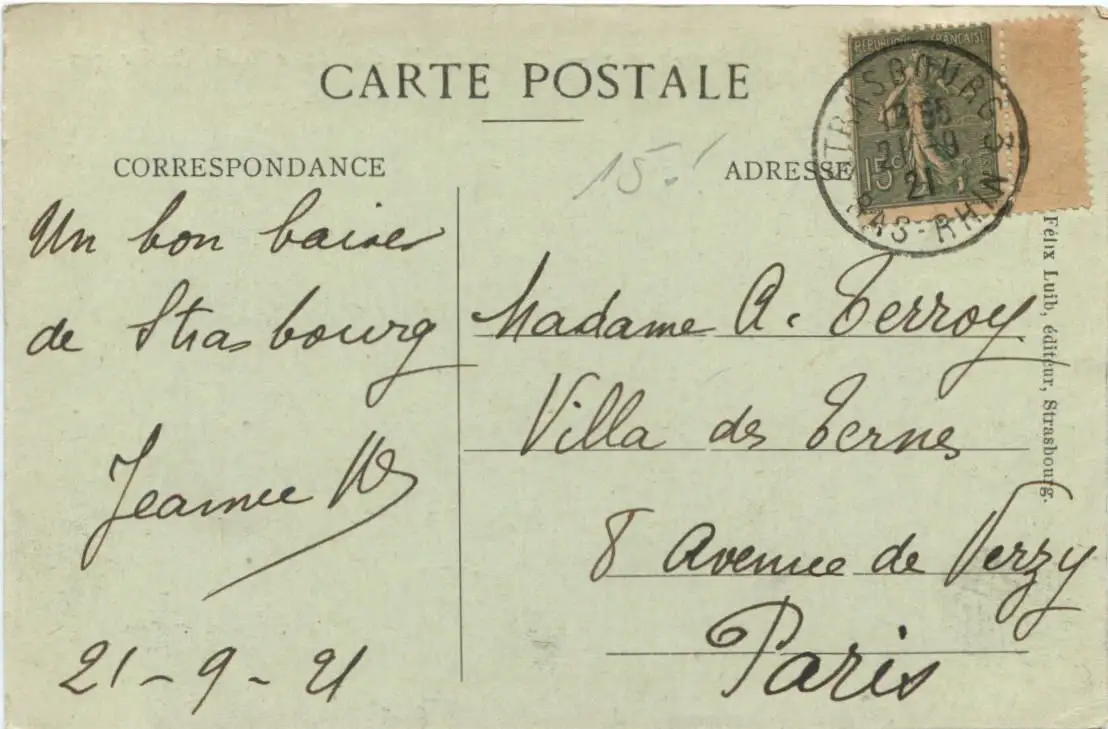 CARTE POSTALE
CORRESPONDANCE
ADRESSE
15.
RÉPUBLIQUE FRANÇAISE
15c
STRASBOURG 3
21-9
21
BAS-RHIN
Un bon baiser
de Strasbourg
Jeanne
21-9-21
Madame A. Terroy
Villa des Ternes
8 Avenue de Verzy
Paris
Félix Luib, éditeur, Strasbourg.